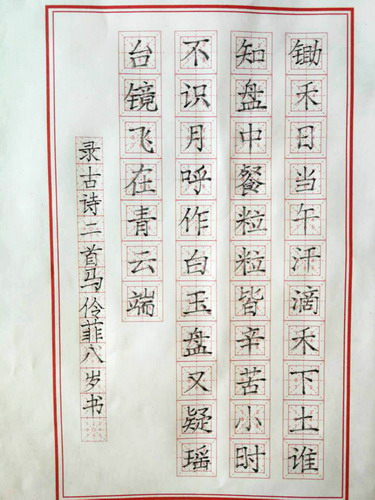 锄禾日当午汗滴禾下土谁
知盘中餐粒粒皆辛苦小时
不识月呼作白玉盘又疑瑶
台镜飞在青云端
录古诗二首马伶菲八岁书